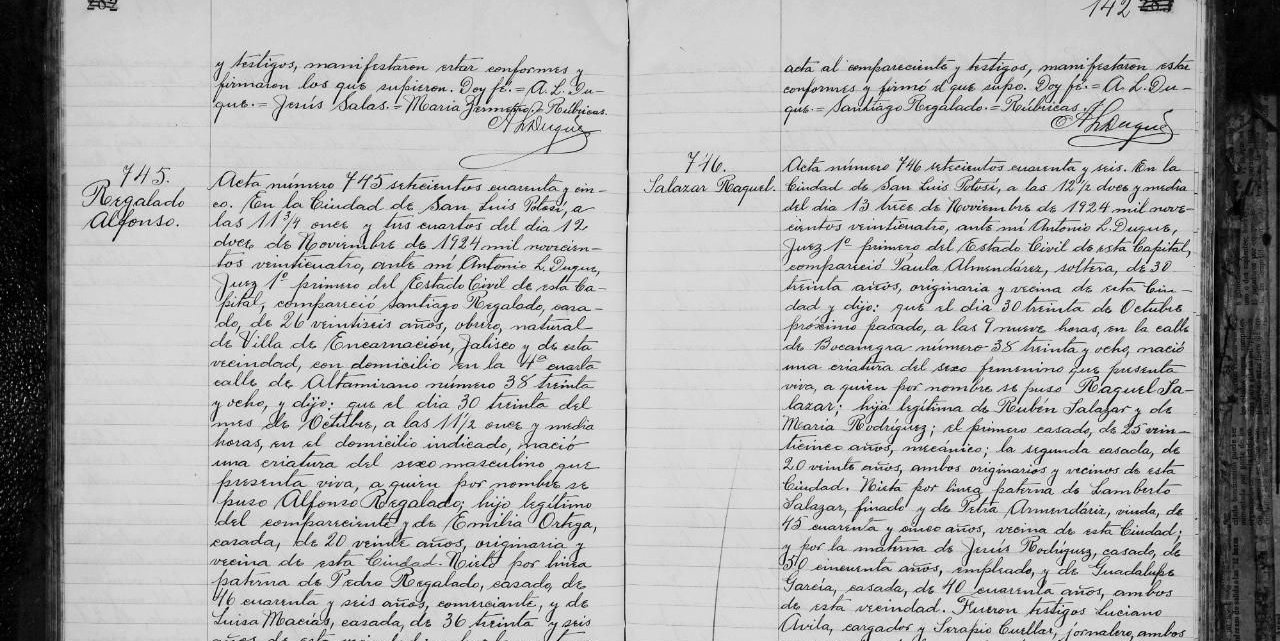 262
y testigos, manifestaron estar conformes y
firmaron los que supieron. Doy fé.= A. L. Du-
que.= Jesús Salas.= María = Rúbricas.
A L Duque
745.
Regalado
Alfonso.
Acta número 745 setecientos cuarenta y cin-
co. En la Ciudad de San Luis Potosí, a
las 11 3/4 once y tres cuartos del dia 12
doce de Noviembre de 1924 mil novecien-
tos veinticuatro, ante mí Antonio L. Duque,
Juez 1º primero del Estado Civil de esta Ca-
pital, compareció Santiago Regalado, casa-
do, de 26 veintiseis años, obrero, natural
de Villa de Encarnación, Jalisco y de esta
vecindad, con domicilio en la 4ª cuarta
calle de Altamirano número 38 treinta
y ocho, y dijo: que el dia 30 treinta del
mes de Octubre, a las 11 1/2 once y media
horas, en el domicilio indicado, nació
una criatura del sexo masculino que
presenta viva, a quien por nombre se
puso Alfonso Regalado; hijo legítimo
del compareciente y de Emilia Ortega,
casada, de 20 veinte años, originaria y
vecina de esta Ciudad. Nieto por línea
paterna de Pedro Regalado, casado, de
46 cuarenta y seis años, comerciante, y de
Luisa Macías, casada, de 36 treinta y seis
años de esta
142
acta al compareciente y testigos, manifestaron estar
conformes y firmó el que supo. Doy fé.= A. L. Du-
que.= Santiago Regalado.= Rúbricas.
A L Duque
746.
Salazar Raquel.
Acta número 746 setecientos cuarenta y seis. En la
Ciudad de San Luis Potosí, a las 12 1/2 doce y media
del dia 13 trece de Noviembre de 1924 mil nove-
cientos veinticuatro, ante mí Antonio L. Duque,
Juez 1º primero del Estado Civil de esta Capital,
compareció Paula Almendárez, soltera, de 30
treinta años, originaria y vecina de esta Ciu-
dad y dijo: que el dia 30 treinta de Octubre
próximo pasado, a las 9 nueve horas, en la calle
de Bocanegra número 38 treinta y ocho, nació
una criatura del sexo femenino que presenta
viva, a quien por nombre se puso Raquel Sa-
lazar; hija legítima de Rubén Salazar y de
María Rodríguez; el primero casado, de 25 vein-
ticinco años, mecánico; la segunda casada, de
20 veinte años, ambos originarios y vecinos de esta
Ciudad. Nieta por línea paterna de Lamberto
Salazar, finado y de Petra Armendáriz, viuda, de
45 cuarenta y cinco años, vecina de esta Ciudad;
y por la materna de Jesús Rodríguez, casado, de
50 cincuenta años, empleado, y de Guadalupe
García, casada, de 40 cuarenta años, ambos
de esta vecindad. Fueron testigos Luciano
Avila, cargador y Serapio Cuellar, jornalero, ambos